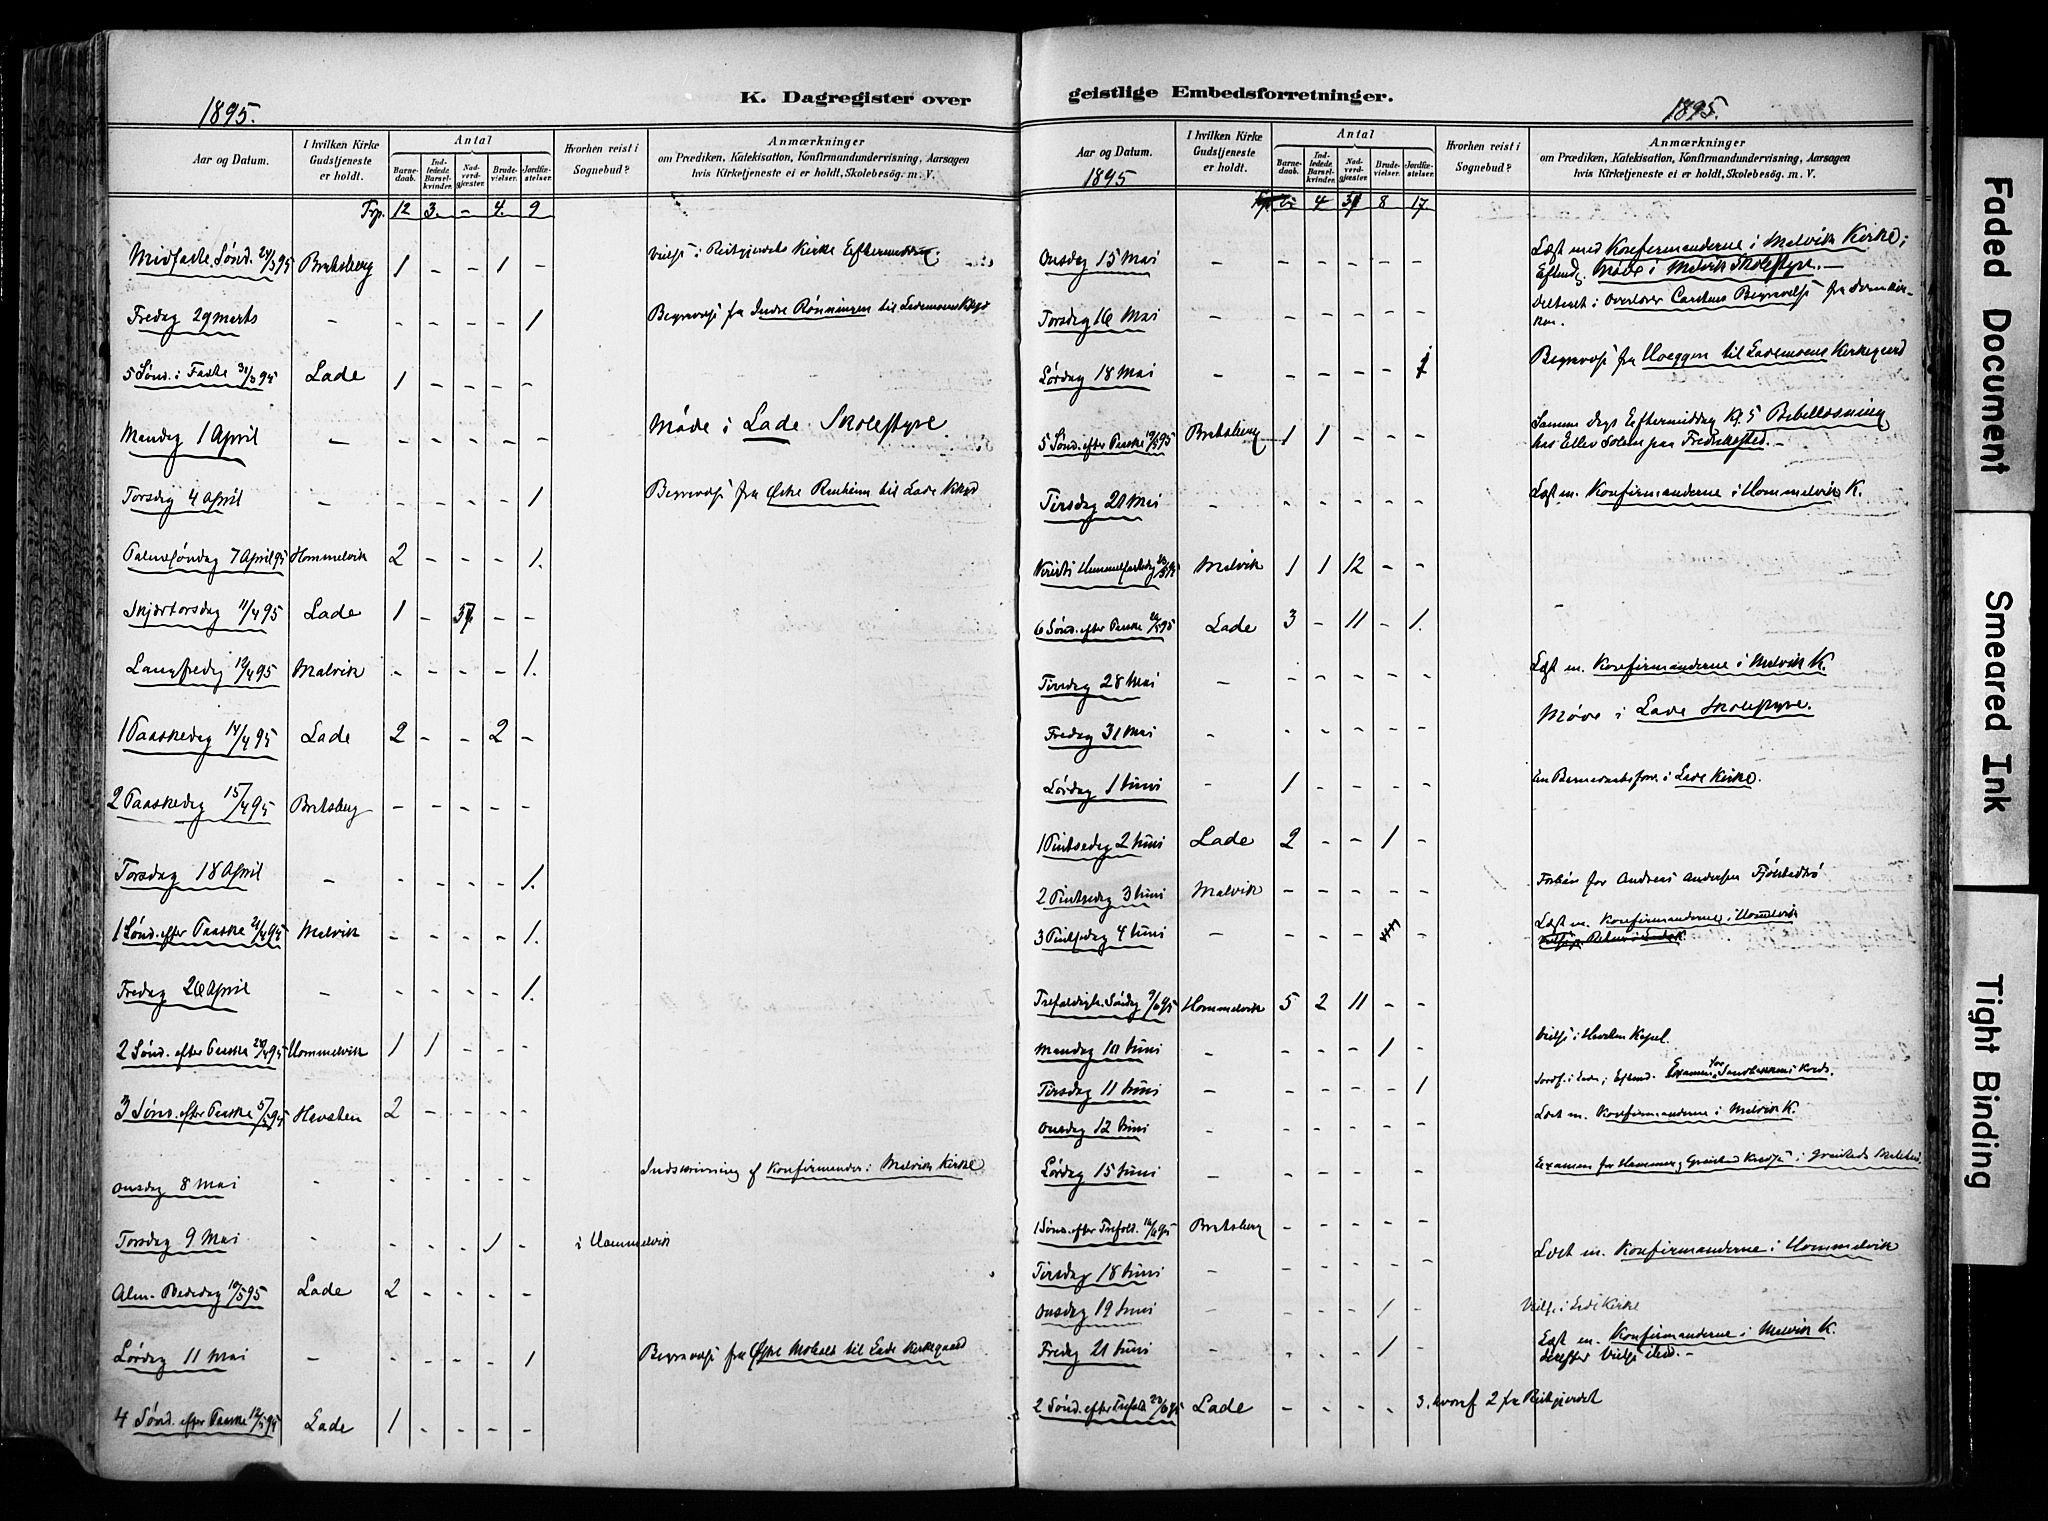 1895.
K. Dagregister over
Aar og Datum.
I hvilken Kirke Gudstjeneste er holdt.
Antal
Barnedaab.
Indledede Barselkvinder.
Nadverdgjester.
Brudevielser.
Jordfæstelser.
Hvorhen reist i Sognebud?
Anmærkninger
om Prædiken, Katekisation, Konfirmandundervisning, Aarsagen
hvis Kirketjeneste ei er holdt, Skolebesøg. m. V.
12 3. - 4. 9
Midfaste Sønd. 24/3 95 Bratsberg 1 - - 1 - i Kirke
Fredag 29 Marts - - - - - 1 Begravelse fra Indre Rønningen til
5 Sønd. i Faste 31/3 95 Lade 1 - - - -
Mandag 1 April - - - - - - Møde i Lade Skolestyre
Torsdag 4 April - - - - - 1 Begravelse fra Østre til Lade
Palmesøndag 7 April 95 Hommelvik 2 - - - 1.
Skjærtorsdag 11/4 95 Lade 1 - - -
Langfredag 12/4 95 Malvik - - - - 1.
1 Paaskedag 14/4 95 Lade 2 - - 2 -
2 Paaskedag 15/4 95 Bratsberg - - - - -
Torsdag 18 April - - - - - 1.
1 Sønd. efter Paaske 21/4 95 Malvik - - - - 1.
Fredag 26 April - - - - - 1.
2 Sønd. efter Paaske 28/4 95 Hommelvik 1 1 - - -
3 Sønd. efter Paaske 5/5 95 Havsten 2 - - - -
Onsdag 8 Mai - - - - - - Indskrivning af Konfirmander i Malvik Kirke
Torsdag 9 Mai - - - - 1 - i Hommelvik
Alm. Bededag 10/5 95 Lade 2 - - - -
Lørdag 11 Mai - - - - - 1 Begravelse fra Østre til Lade Kirkegaard
4 Sønd. efter Paaske 12/5 95 Lade 1 - - - -
geistlige Embedsforretninger.
1895.
Aar og Datum.
1895
I hvilken Kirke Gudstjeneste er holdt.
Antal
Barnedaab.
Indledede Barselkvinder.
Nadverdgjester.
Brudevielser.
Jordfæstelser.
Hvorhen reist i Sognebud?
Anmærkninger
om Prædiken, Katekisation, Konfirmandundervisning, Aarsagen
hvis Kirketjeneste ei er holdt, Skolebesøg. m. V.
4 8 17.
Onsdag 15 Mai - - - - - - Læst med Konfirmanderne i Malvik Kirke;
Møde i Malvik Skolestyre. -
Torsdag 16 Mai - - - - - - Deltaget i Begravelse fra
Lørdag 18 Mai - - - - - 1 Begravelse fra Hoeggen til Lademoens Kirkegaard
5 Sønd. efter Paaske 19/5 95 Bratsberg 1 1 - - - Samme Dags Eftermiddag Kl. 5 Bibellæsning
hos paa
Tirsdag 21 Mai - - - - - - Læst m. Konfirmanderne i Hommelvik K.
Kristi Himmelfartsdag 23/5 95 Malvik 1 1 12 - -
6 Sønd. efter Paaske 26/5 95 Lade 3 - 11 - 1. -
Tirsdag 28 Mai - - - - - - Læst m. Konfirmanderne i Malvik K.
Fredag 31 Mai - - - - - - Møde i Lade Skolestyre.
Lørdag 1 Juni - 1 - - - - i Lade Kirke.
1 Pintsedag 2 Juni Lade 2 - - 1 -
2 Pintsedag 3 Juni Malvik - - - - - for Andreas Andersen
3 Pintsedag 4 Juni - - - - - Læst m. Konfirmanderne i Hommelvik
Trefoldigh. Søndag 9/6 95 Hommelvik 5 2 11 - -
Mandag 10 Juni - - - - 1 - Vielse i Havsten Kapel.
Tirsdag 11 Juni - - - - - 1 Examen for
Onsdag 12 Juni - - - - - - Læst m. Konfirmanderne i Malvik K.
Lørdag 15 Juni - - - - - - Examen for
1 Sønd. efter Trefold. 16/6 95 Bratsberg - - - - -
Tirsdag 18 Juni - - - - - - Læst m. Konfirmanderne i Hommelvik
Onsdag 19 Juni - - - - 1 - Vielse i Lade Kirke
Fredag 21 Juni - - - - 1 - Læst m. Konfirmanderne i Malvik K.
derefter Vielse
2 Sønd. efter Trefold. 23/6 95 Lade - - - - 3. hvoraf 2 fra
Faded Document
Smeared Ink
Tight Binding